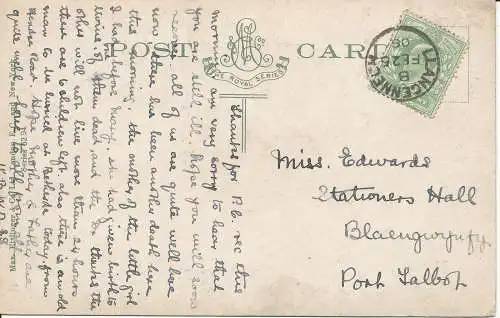 POST CARD
THE ROYAL SERIES
LLANGENNECH
B
FE 25
09
Miss. Edwards
Stationers Hall
Blaengwynfy
Port Talbot
Thanks for P.C. rec this
morning am very sorry to hear that
you are still ill. Hope you will soon
all of us are quite well here
now there has been another death here
this morning, the mother of the little girl
I had before Mary, she had given birth to
twins & one of them dead and the Dr thanks the
other will not live more than 24 hours
there are 10 children left, also there is an old
man to be buried at Bethesda today from
Road. Hope Mother & Father are
quite well